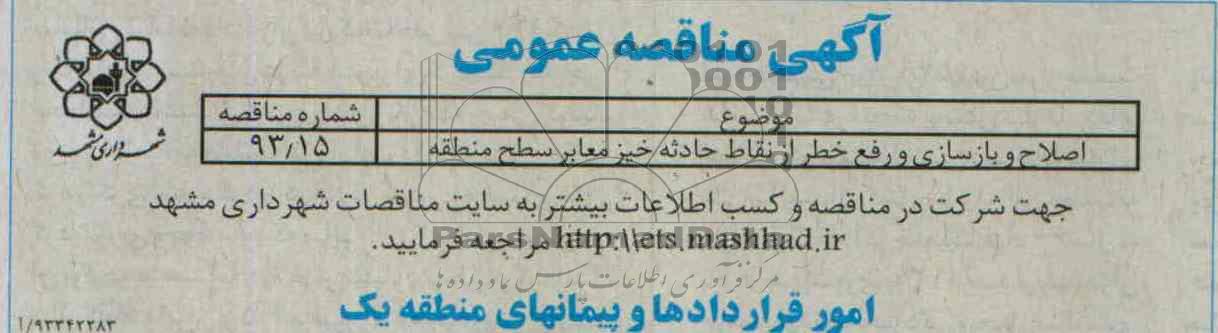 آگهی مناقصه عمومی
شهرداری مشهد
موضوع شماره مناقصه
اصلاح و بازسازی و رفع خطر از نقاط حادثه خیز معابر سطح منطقه ۹۳/۱۵
جهت شرکت در مناقصه و کسب اطلاعات بیشتر به سایت مناقصات شهرداری مشهد
http:\\ets.mashhad.ir مراجعه فرمایید.
ParsNamadData
مرکز فرآوری اطلاعات پارس نماد داده ها
امور قراردادها و پیمانهای منطقه یک
۱/۹۳۳۴۲۲۸۳